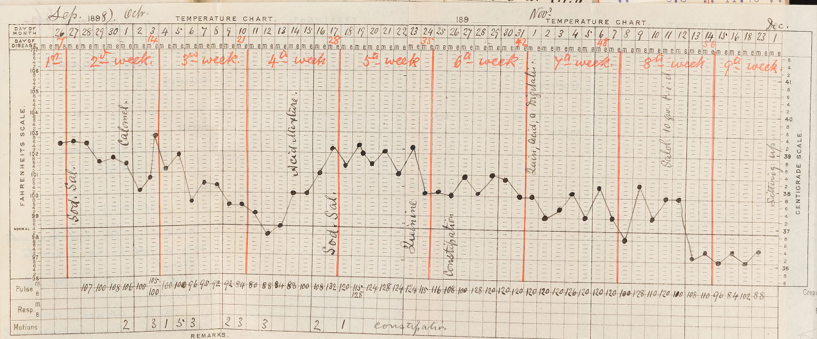 Sep. 1898). Oct. TEMPERATURE CHART. 189 Nov. TEMPERATURE CHART. Dec.
DAY OF MONTH 26 27 28 29 30 1 2 3 4 5 6 7 8 9 10 11 12 13 14 15 16 17 18 19 20 21 22 23 24 25 26 27 28 29 30 31 1 2 3 4 5 6 7 8 9 10 11 12 13 14 15 16 18 23 1
DAY OF DISEASE 7 14 21 28 35 42 48 56
1st 2nd week 3rd week 4th week 5th week 6th week 7th week 8th week 9th week
FAHRENHEITS SCALE.
CENTIGRADE SCALE.
NORMAL
Sod. Sal.
Calomel.
Acid Mixture.
Sod. Sal.
Quinine
Constipation
Quin, Acid, & Digitalis.
Salol 10 grs. t.i.d.
Sitting up
40
39
38
37
36
Pulse 107 100 108 106 100 108 100 100 100 96 90 92 92 84 80 88 84 88 100 108 132 120 115 128 124 128 124 124 115 116 108 100 128 120 124 120 120 120 120 126 120 120 120 100 128 110 120 100 108 110 96 84 102 88
Resp
Motions 2 3 1 5 3 2 3 3 2 1 constipation
REMARKS.